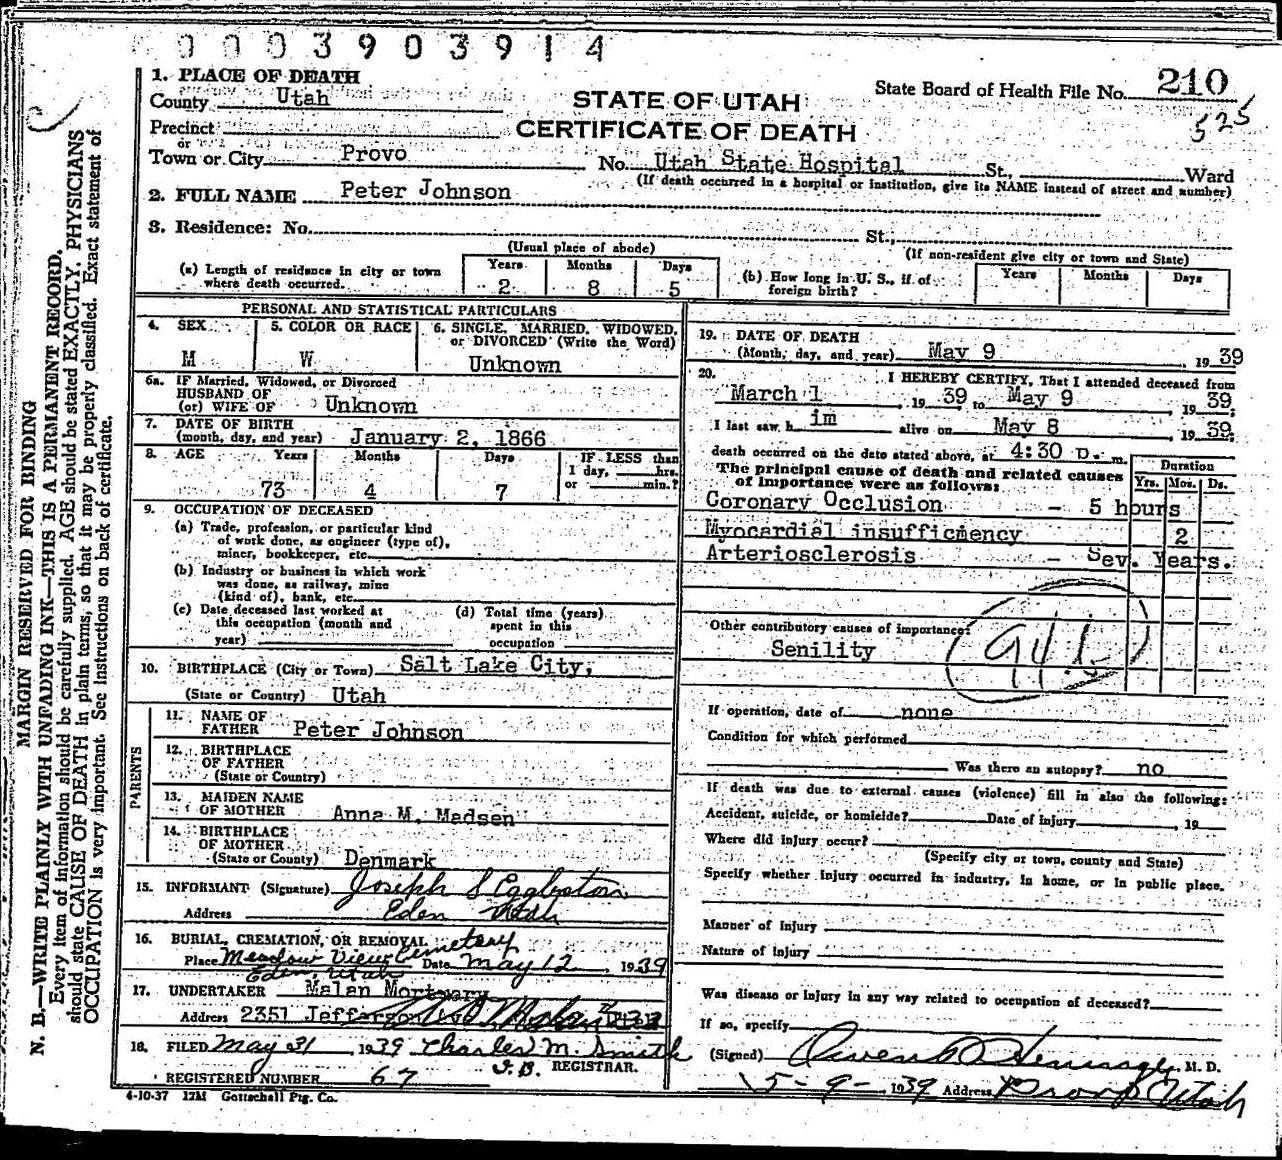 0003903914
1. PLACE OF DEATH
County Utah
State Board of Health File No. 210
525
STATE OF UTAH
CERTIFICATE OF DEATH
Precinct
or
Town or City Provo No. Utah State Hospital St., Ward
(If death occurred in a hospital or institution, give its NAME instead of street and number)
2. FULL NAME Peter Johnson
3. Residence: No. St.,
(Usual place of abode) (If non-resident give city or town and State)
(a) Length of residence in city or town where death occurred. Years 2 Months 8 Days 5
(b) How long in U. S., if of foreign birth? Years Months Days
PERSONAL AND STATISTICAL PARTICULARS
4. SEX M
5. COLOR OR RACE W
6. SINGLE, MARRIED, WIDOWED, or DIVORCED (Write the Word) Unknown
6a. IF Married, Widowed, or Divorced
HUSBAND OF
(or) WIFE OF Unknown
7. DATE OF BIRTH
(month, day, and year) January 2, 1866
8. AGE Years 73 Months 4 Days 7
IF LESS than 1 day, hrs. or min.?
9. OCCUPATION OF DECEASED
(a) Trade, profession, or particular kind
of work done, as engineer (type of),
miner, bookkeeper, etc.
(b) Industry or business in which work
was done, as railway, mine
(kind of), bank, etc.
(c) Date deceased last worked at
this occupation (month and
year)
(d) Total time (years)
spent in this
occupation
10. BIRTHPLACE (City or Town) Salt Lake City,
(State or Country) Utah
PARENTS
11. NAME OF
FATHER Peter Johnson
12. BIRTHPLACE
OF FATHER
(State or Country)
13. MAIDEN NAME
OF MOTHER Anna M. Madsen
14. BIRTHPLACE
OF MOTHER
(State or County) Denmark
15. INFORMANT (Signature) Joseph S Eggleston
Address Eden Utah
16. BURIAL, CREMATION, OR REMOVAL
Place Meadow View Cemetery Date May 12, 1939
Eden, Utah
17. UNDERTAKER Malan Mortuary
Address 2351 Jefferson
18. FILED May 31 1939 Charles M. Smith
REGISTRAR.
REGISTERED NUMBER 67
4-10-37 12M Gottschall Ptg. Co.
19. DATE OF DEATH
(Month, day, and year) May 9, 1939
20. I HEREBY CERTIFY, That I attended deceased from
March 1, 1939, to May 9, 1939;
I last saw him alive on May 8, 1939;
death occurred on the date stated above, at 4:30 p. m.
The principal cause of death and related causes
of importance were as follows:
Duration
Yrs. Mos. Ds.
Coronary Occlusion - 5 hours
Myocardial insufficiency 2
Arteriosclerosis - Sev. Years.
Other contributory causes of importance:
Senility
If operation, date of none
Condition for which performed
Was there an autopsy? no
If death was due to external causes (violence) fill in also the following:
Accident, suicide, or homicide? Date of injury , 19
Where did injury occur?
(Specify city or town, county and State)
Specify whether injury occurred in industry, in home, or in public place.
Manner of injury
Nature of injury
Was disease or injury in any way related to occupation of deceased?
If so, specify
(Signed) M. D.
5-9-, 1939 Address Provo, Utah
MARGIN RESERVED FOR BINDING
N. B.—WRITE PLAINLY WITH UNFADING INK—THIS IS A PERMANENT RECORD.
Every item of information should be carefully supplied. AGE should be stated EXACTLY. PHYSICIANS
should state CAUSE OF DEATH in plain terms, so that it may be properly classified. Exact statement of
OCCUPATION is very important. See instructions on back of certificate.